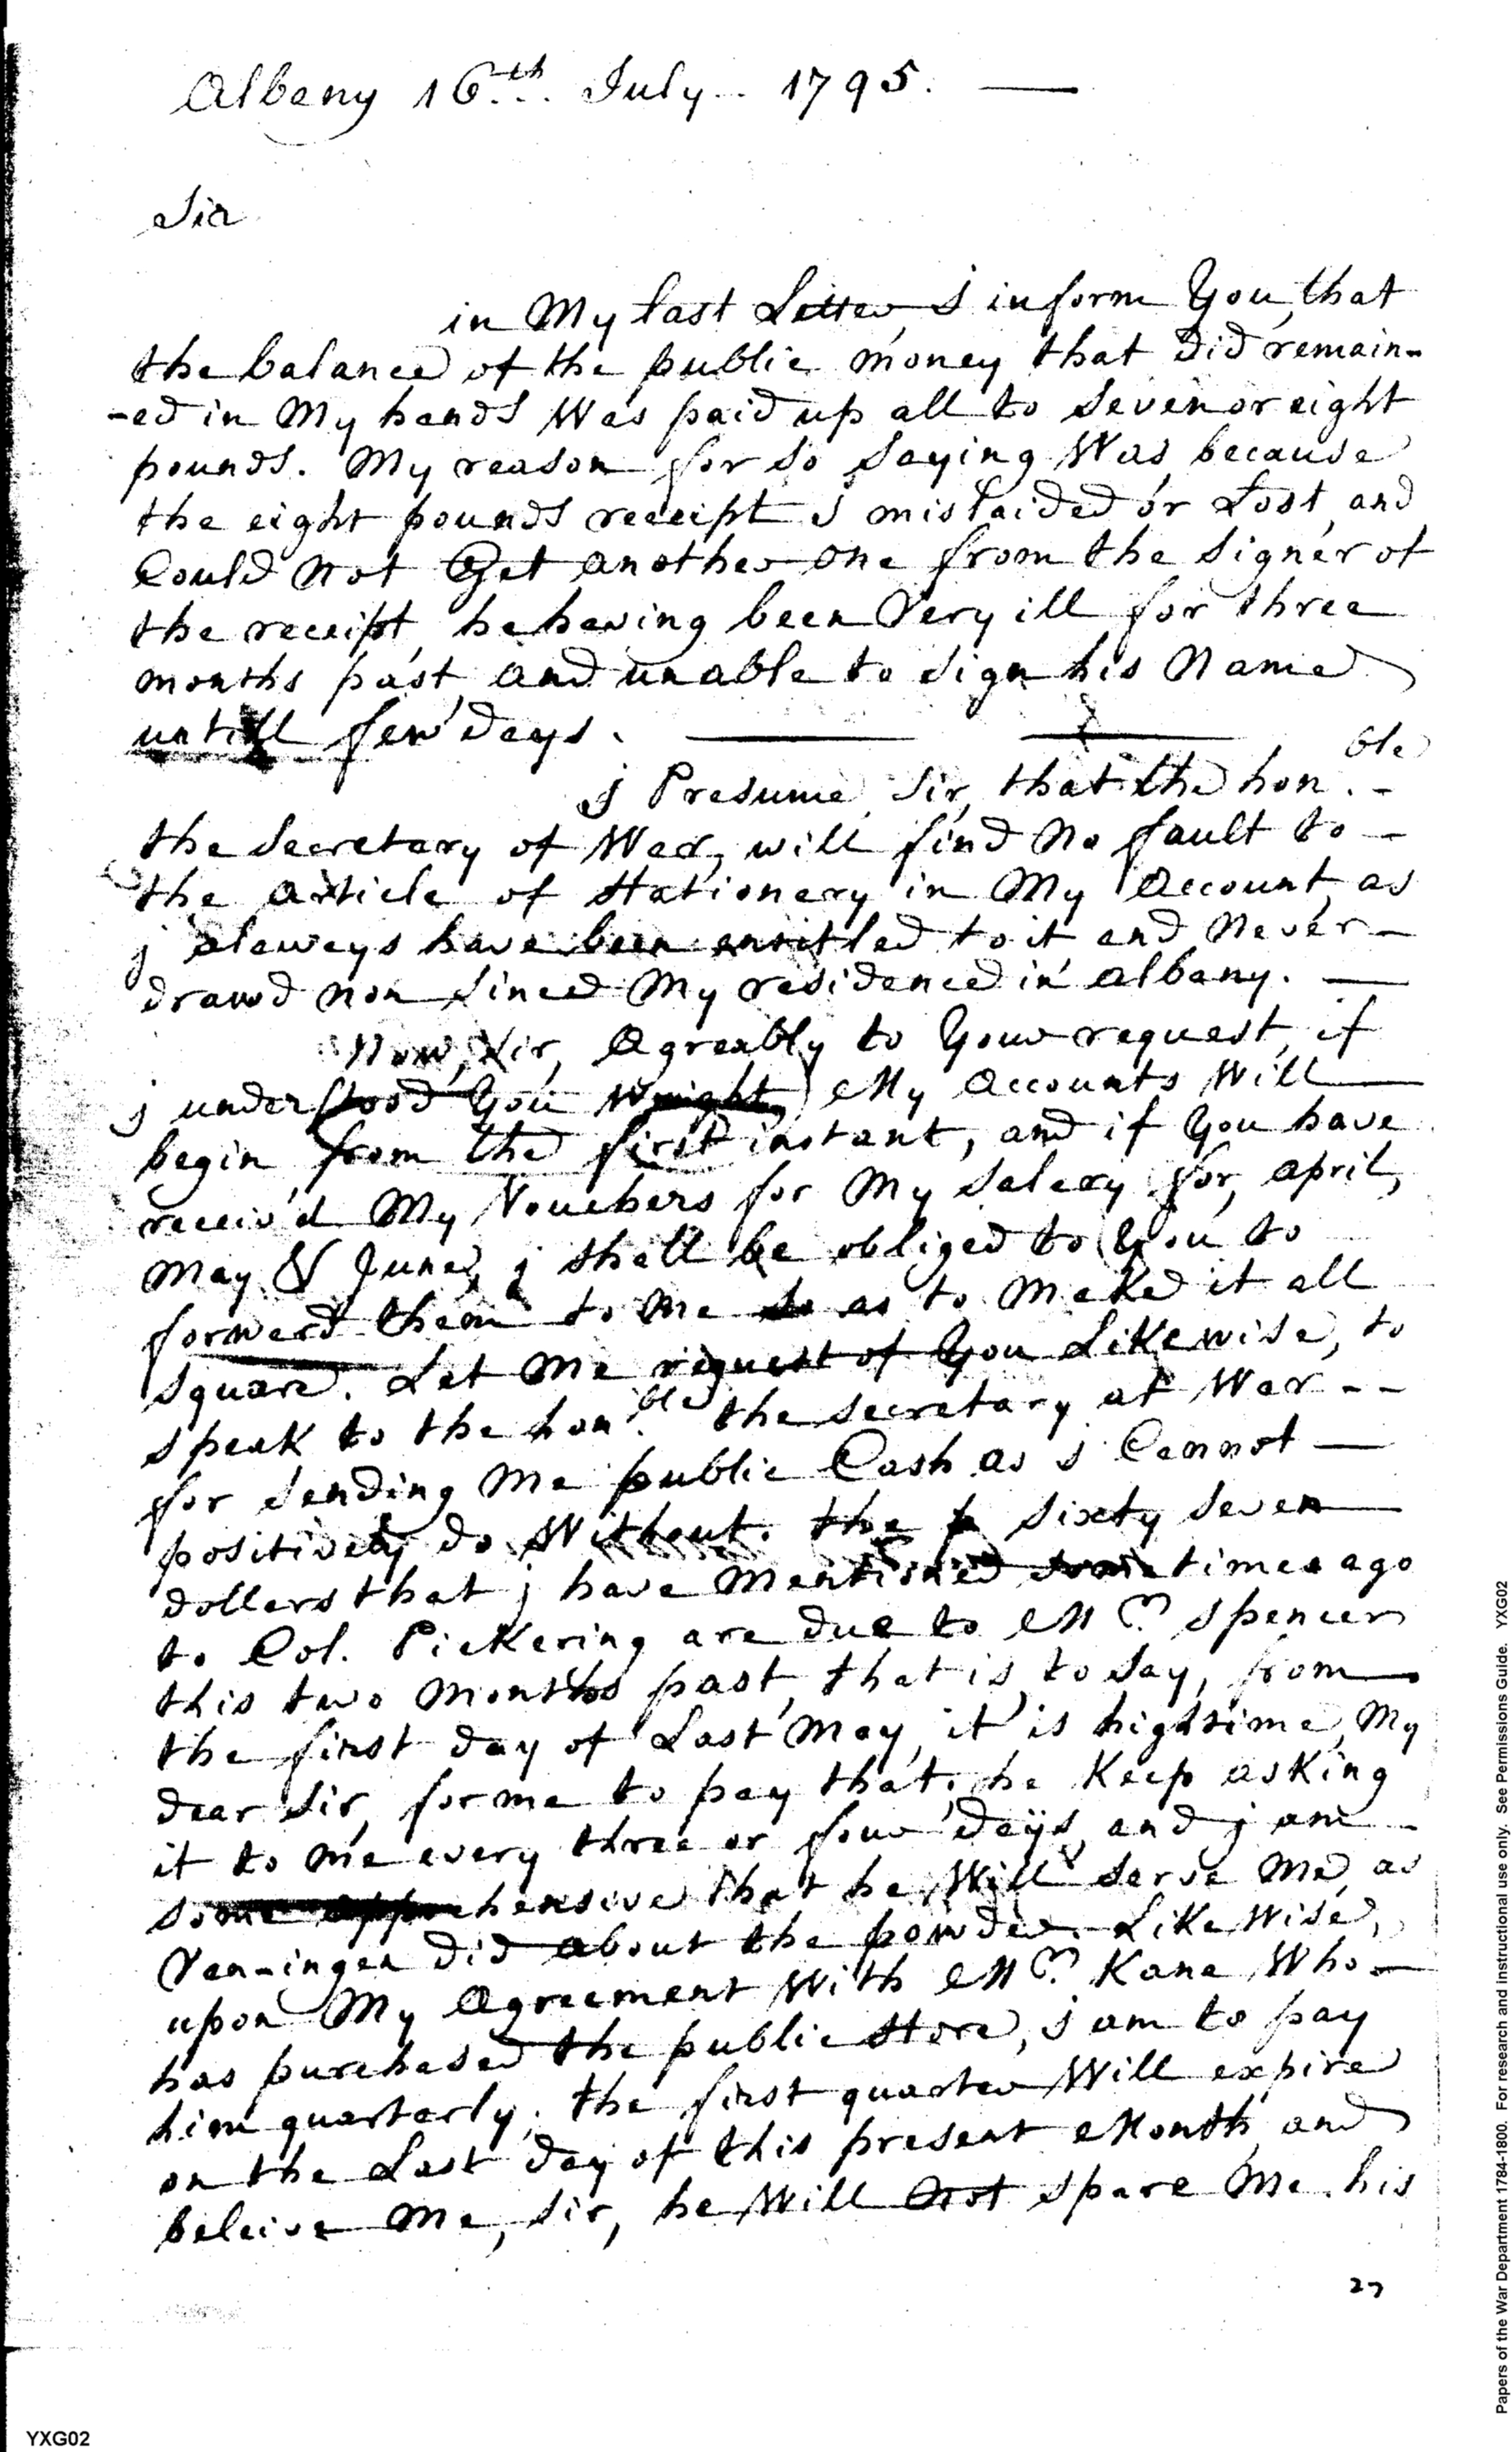 Albany 16th July 1795. —
Sir
in My last Letter, I inform You, that
the balance of the public money that did remain-
-ed in My hands Was paid up all to Seven or eight
pounds. My reason for So Saying Was because
the eight pounds receipt I mislaided or Lost, and
Could Not Get another one from the Signer of
the receipt, he having been Very ill for three
months past, and unable to Sign his Name
untill few days. —
j Presume, Sir, that the honble. -
the Secretary of War, will find No fault to -
the Article of Stationery in My Account, as
j alaways have been entitled to it and Never -
drawd non Since My residence in Albany. —
Now, Sir, Agreably to Your request, if
j understood You Wright, My Accounts Will
begin from the first instant, and if You have
receiv'd My Vouchers for My Salary for, april,
May & June, j Shall be obliged to You to
forward them to Me So as to Make it all
Square. Let Me request of You Likewise, to
Speak to the honble. the Secretary at War --
for Sending Me public Cash as I Cannot —
positively do Without. the sixty Seven
dollars that j have Mentioned some times ago
to Col. Pickering are due to Mr. Spencer
this two Months past, that is to Say, from
the first day of Last May, it is hightime, My
dear Sir, for me to pay that, he Keep asKing
it to me every three or four days, and j am
some apprehensive that he Will Serve Me, as
Van-ingen did about the powder. LikeWise,
upon My Agreement With Mr. Kane Who -
has purchased the public Store, j am to pay
him quarterly, the first quarter Will expire
on the Last day of this present Month, and
beleive Me, Sir, he Will Not Spare Me. his
27
YXG02
Papers of the War Department 1784-1800. For research and instructional use only. See Permissions Guide. YXG02